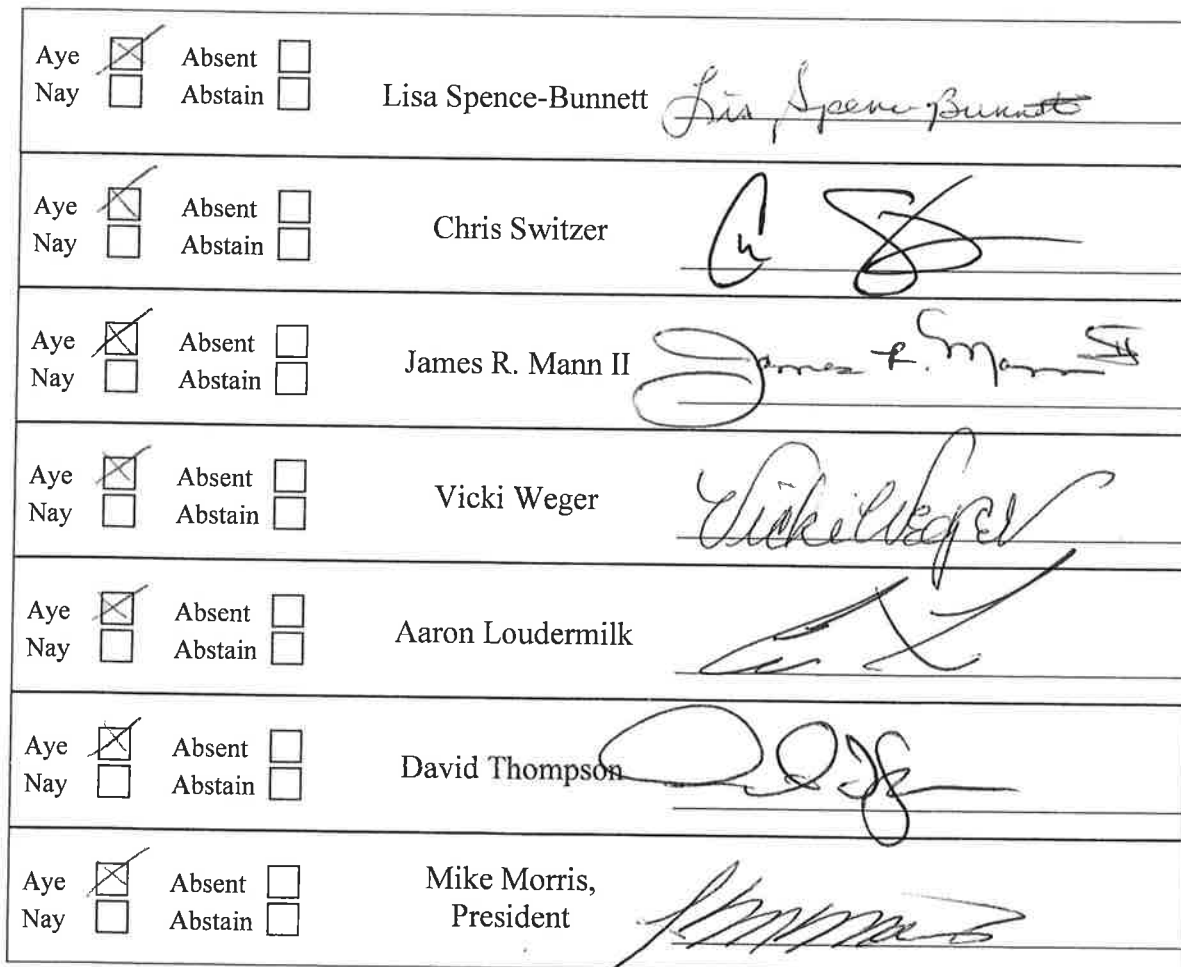 Aye ☒ Absent ☐
Nay ☐ Abstain ☐
Lisa Spence-Bunnett Lisa Spence-Bunnett
Aye ☒ Absent ☐
Nay ☐ Abstain ☐
Chris Switzer
Aye ☒ Absent ☐
Nay ☐ Abstain ☐
James R. Mann II James R. Mann II
Aye ☒ Absent ☐
Nay ☐ Abstain ☐
Vicki Weger Vicki Weger
Aye ☒ Absent ☐
Nay ☐ Abstain ☐
Aaron Loudermilk
Aye ☒ Absent ☐
Nay ☐ Abstain ☐
David Thompson
Aye ☒ Absent ☐
Nay ☐ Abstain ☐
Mike Morris,
President